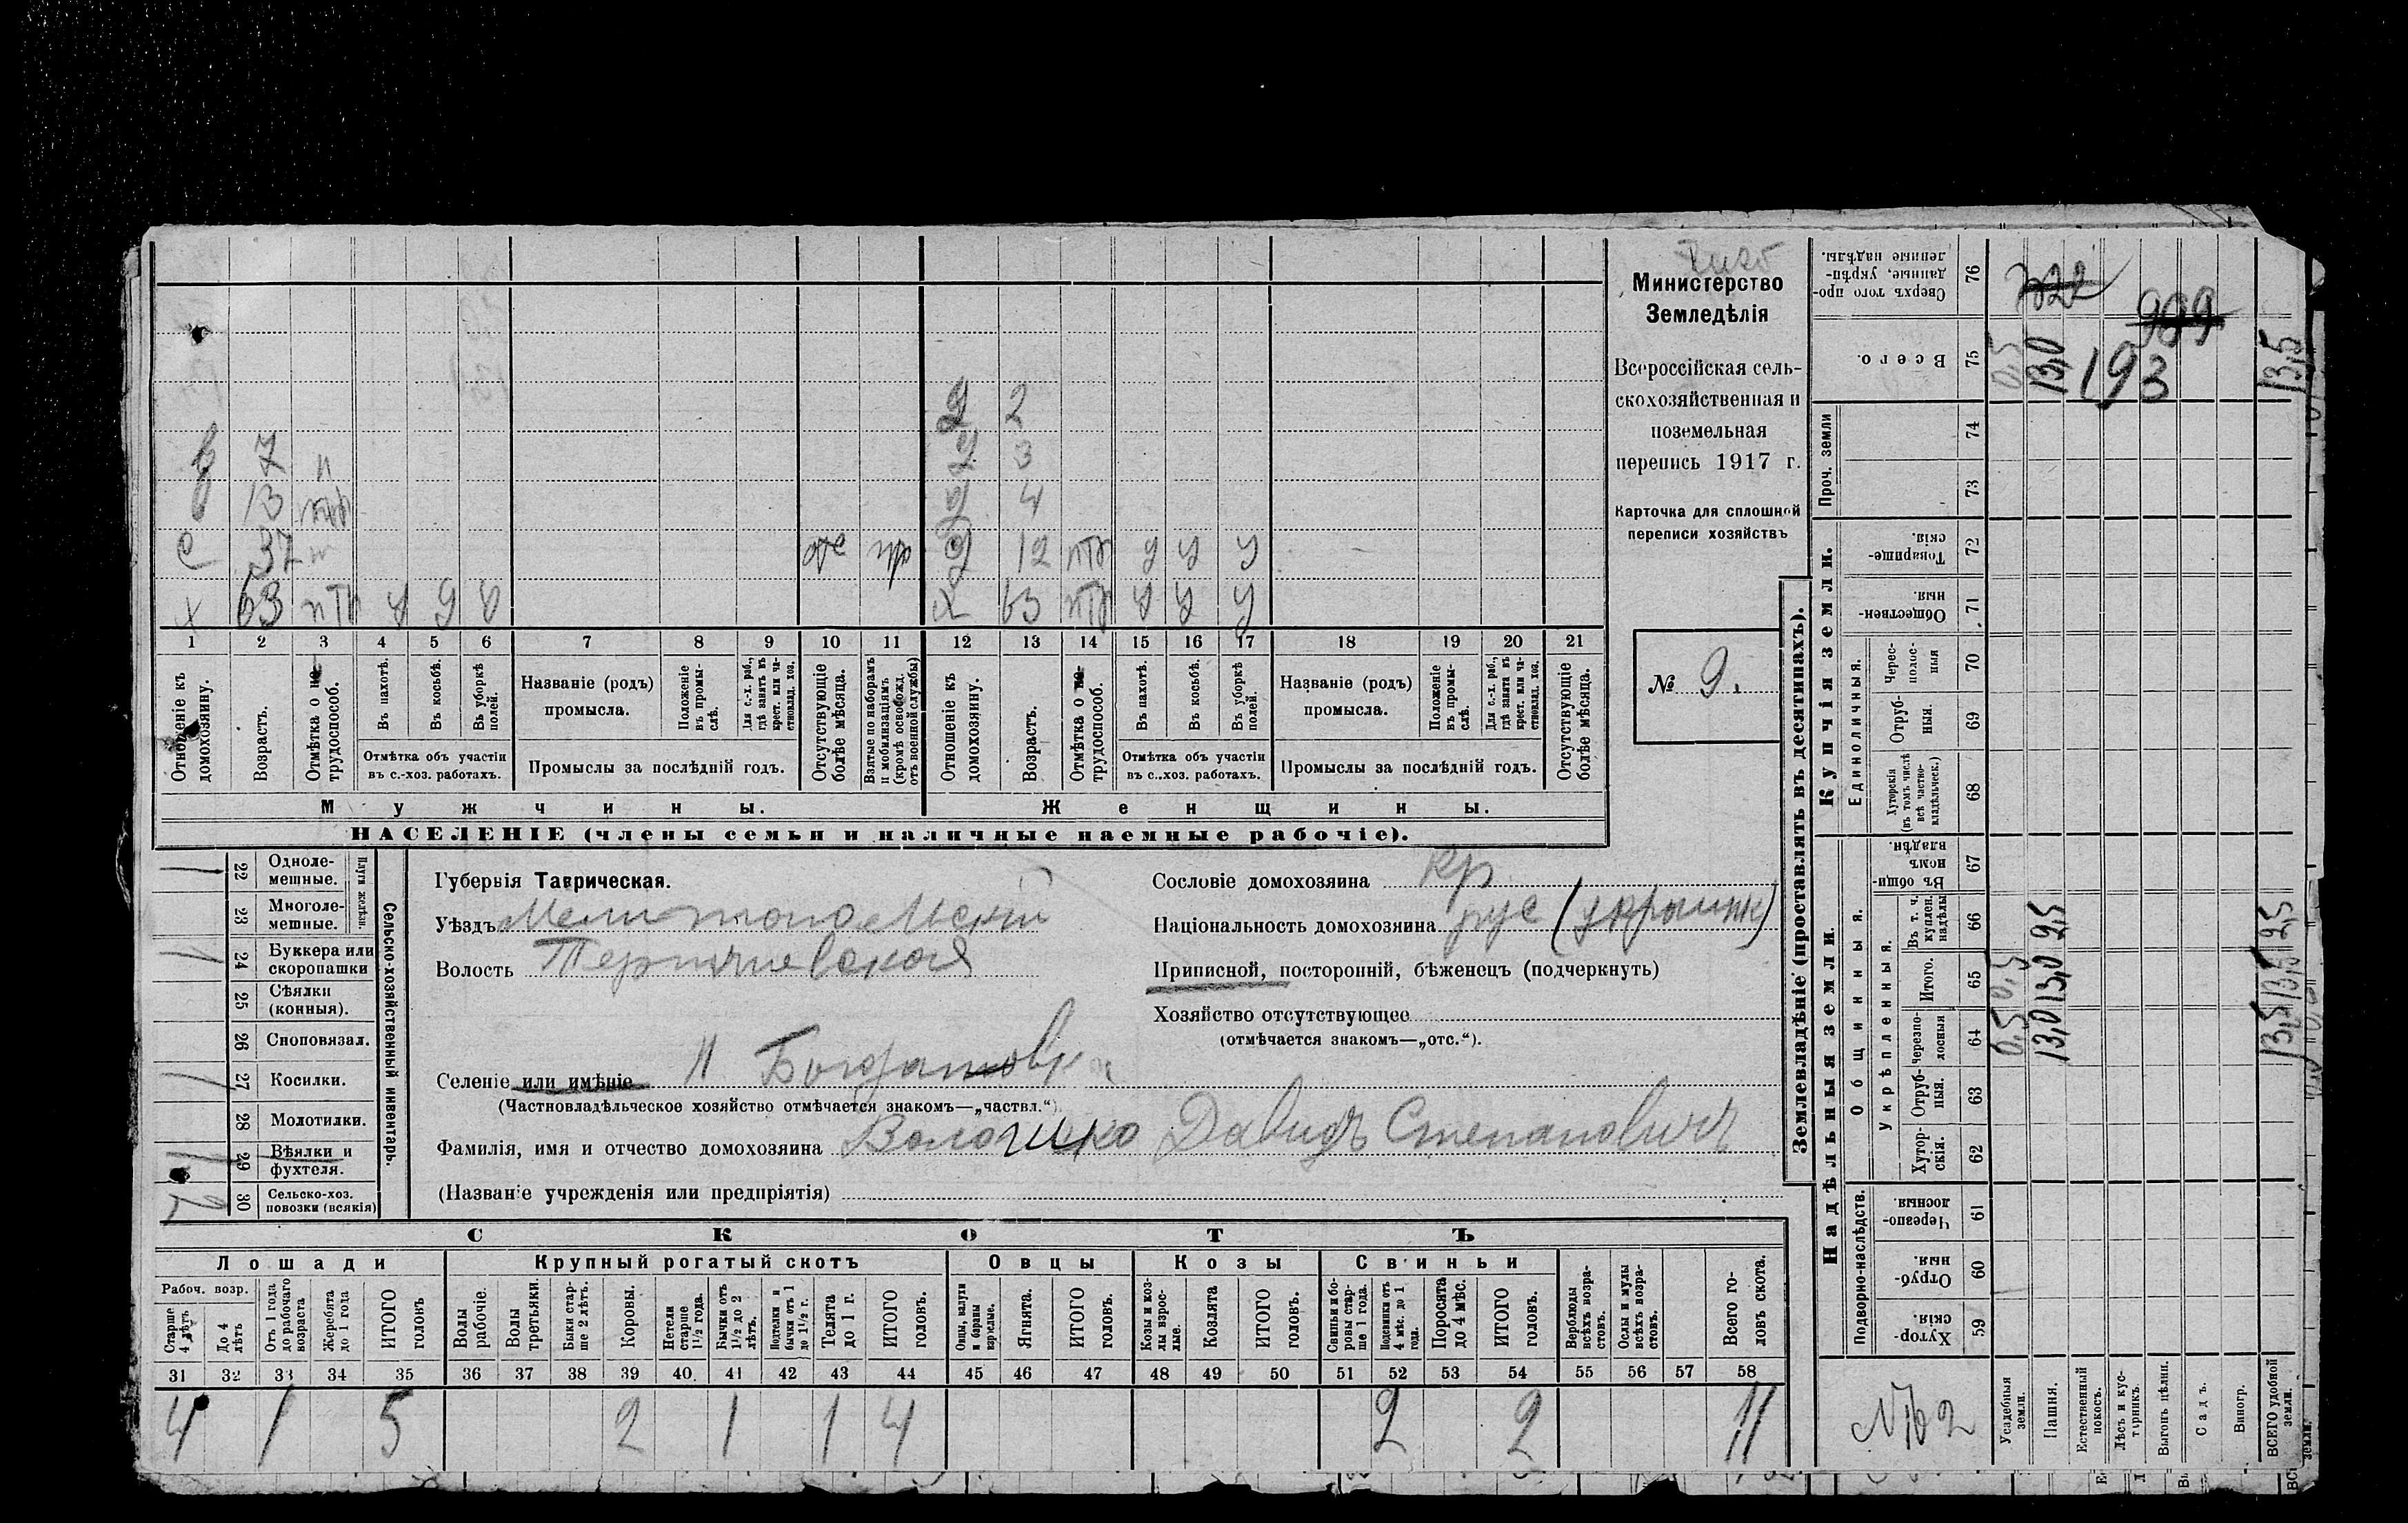 Министерство
Земледѣлія
Всероссійская сель-
скохозяйственная и
поземельная
перепись 1917 г.
Карточка для сплошной
переписи хозяйствъ
№ 9.
2 2
3
в 7 п
13 4
с 37 отс 12 птр у у у
х 63 птр у у у 63 птр у у у
1 2 3 4 5 6 7 8 9 10 11 12 13 14 15 16 17 18 19 20 21
Отношеніе къ домохозяину.
Возрастъ.
Отмѣтка о не трудоспособ.
Въ пахотѣ.
Въ косьбѣ.
Въ уборкѣ полей.
Отмѣтка объ участіи
въ с.-хоз. работахъ.
Названіе (родъ)
промысла.
Положеніе въ промы-слѣ.
Для с.-х. раб., гдѣ занятъ въ крест. или ча-стновлад. хоз.
Промыслы за послѣдній годъ.
Отсутствующіе болѣе мѣсяца.
Взятые по наборамъ и мобилизаціямъ (кромѣ освобожд. отъ военной службы)
Отношеніе къ домохозяину.
Возрастъ.
Отмѣтка о не трудоспособ.
Въ пахотѣ.
Въ косьбѣ.
Въ уборкѣ полей.
Отмѣтка объ участіи
въ с.-хоз. работахъ.
Названіе (родъ)
промысла.
Положеніе въ промы-слѣ.
Для с.-х. раб., гдѣ занята въ крест. или ча-стновлад. хоз.
Промыслы за послѣдній годъ.
Отсутствующіе болѣе мѣсяца.
Мужчины. Женщины.
НАСЕЛЕНІЕ (члены семьи и наличные наемные рабочіе).
22 Одноле-мешные.
Плуги желѣзн.
23 Многоле-мешные.
24 Буккера или скоропашки
25 Сѣялки (конныя).
26 Сноповязал.
27 Косилки.
28 Молотилки.
29 Вѣялки и фухтеля.
30 Сельско-хоз. повозки (всякія)
Сельско-хозяйственный инвентарь.
Губернія Таврическая.
Уѣздъ Мелитопольскій
Волость
Селеніе или имѣніе Богдановка
(Частновладѣльческое хозяйство отмѣчается знакомъ—„частвл.“).
Фамилія, имя и отчество домохозяина Давидъ Степановичъ
(Названіе учрежденія или предпріятія)
Сословіе домохозяина кр
Національность домохозяина рус (украин)
Приписной, посторонній, бѣженецъ (подчеркнуть)
Хозяйство отсутствующее
(отмѣчается знакомъ—„отс.“).
СКОТЪ
Лошади Крупный рогатый скотъ Овцы Козы Свиньи
Рабоч. возр.
Старше 4 лѣтъ
До 4 лѣтъ
Отъ 1 года до рабочаго возраста
Жеребята до 1 года
ИТОГО головъ
Волы рабочіе.
Волы третьяки.
Быки стар-ше 2 лѣтъ.
Коровы.
Нетели старше 1½ года.
Бычки отъ 1½ до 2 лѣтъ.
Подтелки и бычки отъ 1 до 1½ г.
Телята до 1 г.
ИТОГО головъ.
Овцы, валухи и бараны взрослые.
Ягнята.
ИТОГО головъ.
Козы и коз-лы взрос-лые.
Козлята
ИТОГО головъ.
Свиньи и бо-ровы стар-ше 1 года.
Подсвинки отъ 4 мѣс. до 1 года.
Поросята до 4 мѣс.
ИТОГО головъ.
Верблюды всѣхъ возра-стовъ.
Ослы и мулы всѣхъ возра-стовъ.
Всего го-ловъ скота.
31 32 33 34 35 36 37 38 39 40 41 42 43 44 45 46 47 48 49 50 51 52 53 54 55 56 57 58
4 1 5 2 1 1 4 2 2 11
Землевладѣніе (проставлять въ десятинахъ).
Купчія земли.
Надѣльныя земли.
Сверхъ того про-данные, укрѣп-ленные надѣлы. 76
Всего. 75
Проч. земли 74 73
Товарище-скія. 72
Обществен-ныя. 71
Единоличныя.
Черес-полос-ныя 70
Отруб-ныя. 69
Хуторскія (въ томъ числѣ всѣ частно-владѣльческ.) 68
Общинныя.
Въ общи-номъ владѣн. 67
Укрѣпленныя.
Въ т. ч. куплен. надѣлы 66
Итого. 65
Черезпо-лосныя 64
Отруб-ныя. 63
Хутор-скія. 62
Подворно-наслѣдств.
Черезпо-лосныя 61
Отруб-ныя. 60
Хутор-скія. 59
№ 2
Усадебныя земли.
Пашня.
Естественный покосъ.
Лѣсъ и кус-тарникъ.
Выгонъ цѣлин.
Садъ.
Виногр.
ВСЕГО удобной земли.
909
193
0,5 13,0 13,5
2,5 2,5
0,5 13,0 13,5
0,5 13,0 13,5